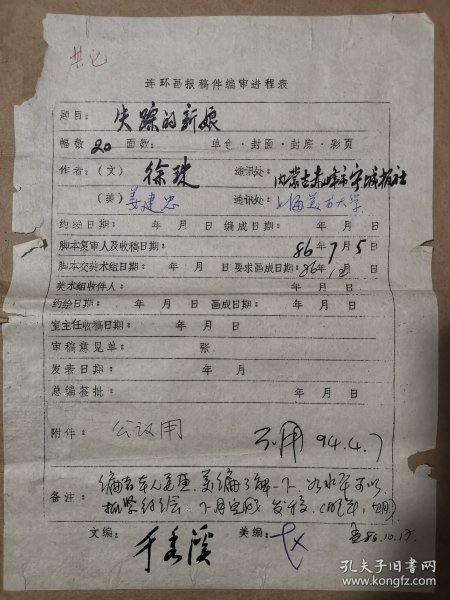 连环画报稿件编审进程表
题目：失踪的新娘
幅数 20 面数： 单色·封面·封底·彩页
作者：（文）徐珠 通讯处：内蒙古赤峰市宁城报社
（美）姜建忠 通讯处：上海美
约绘日期： 年 月 日 编成日期： 年 月 日
脚本复审人及收稿日期： 86年7月5日
脚本交美术组日期： 年 月 日 要求画成日期：86年 月 日
美术组收件人： 年 月 日
约绘日期： 年 月 日 画成日期： 年 月 日
室主任收稿日期： 年 月 日
审稿意见单： 张
发表日期： 年 月
总编签批： 年 月 日
附件：公议用 不用 94.4.7
备注：
抓紧约绘
文编： 美编：
86.10.17
孔夫子旧书网
www.kongfz.com